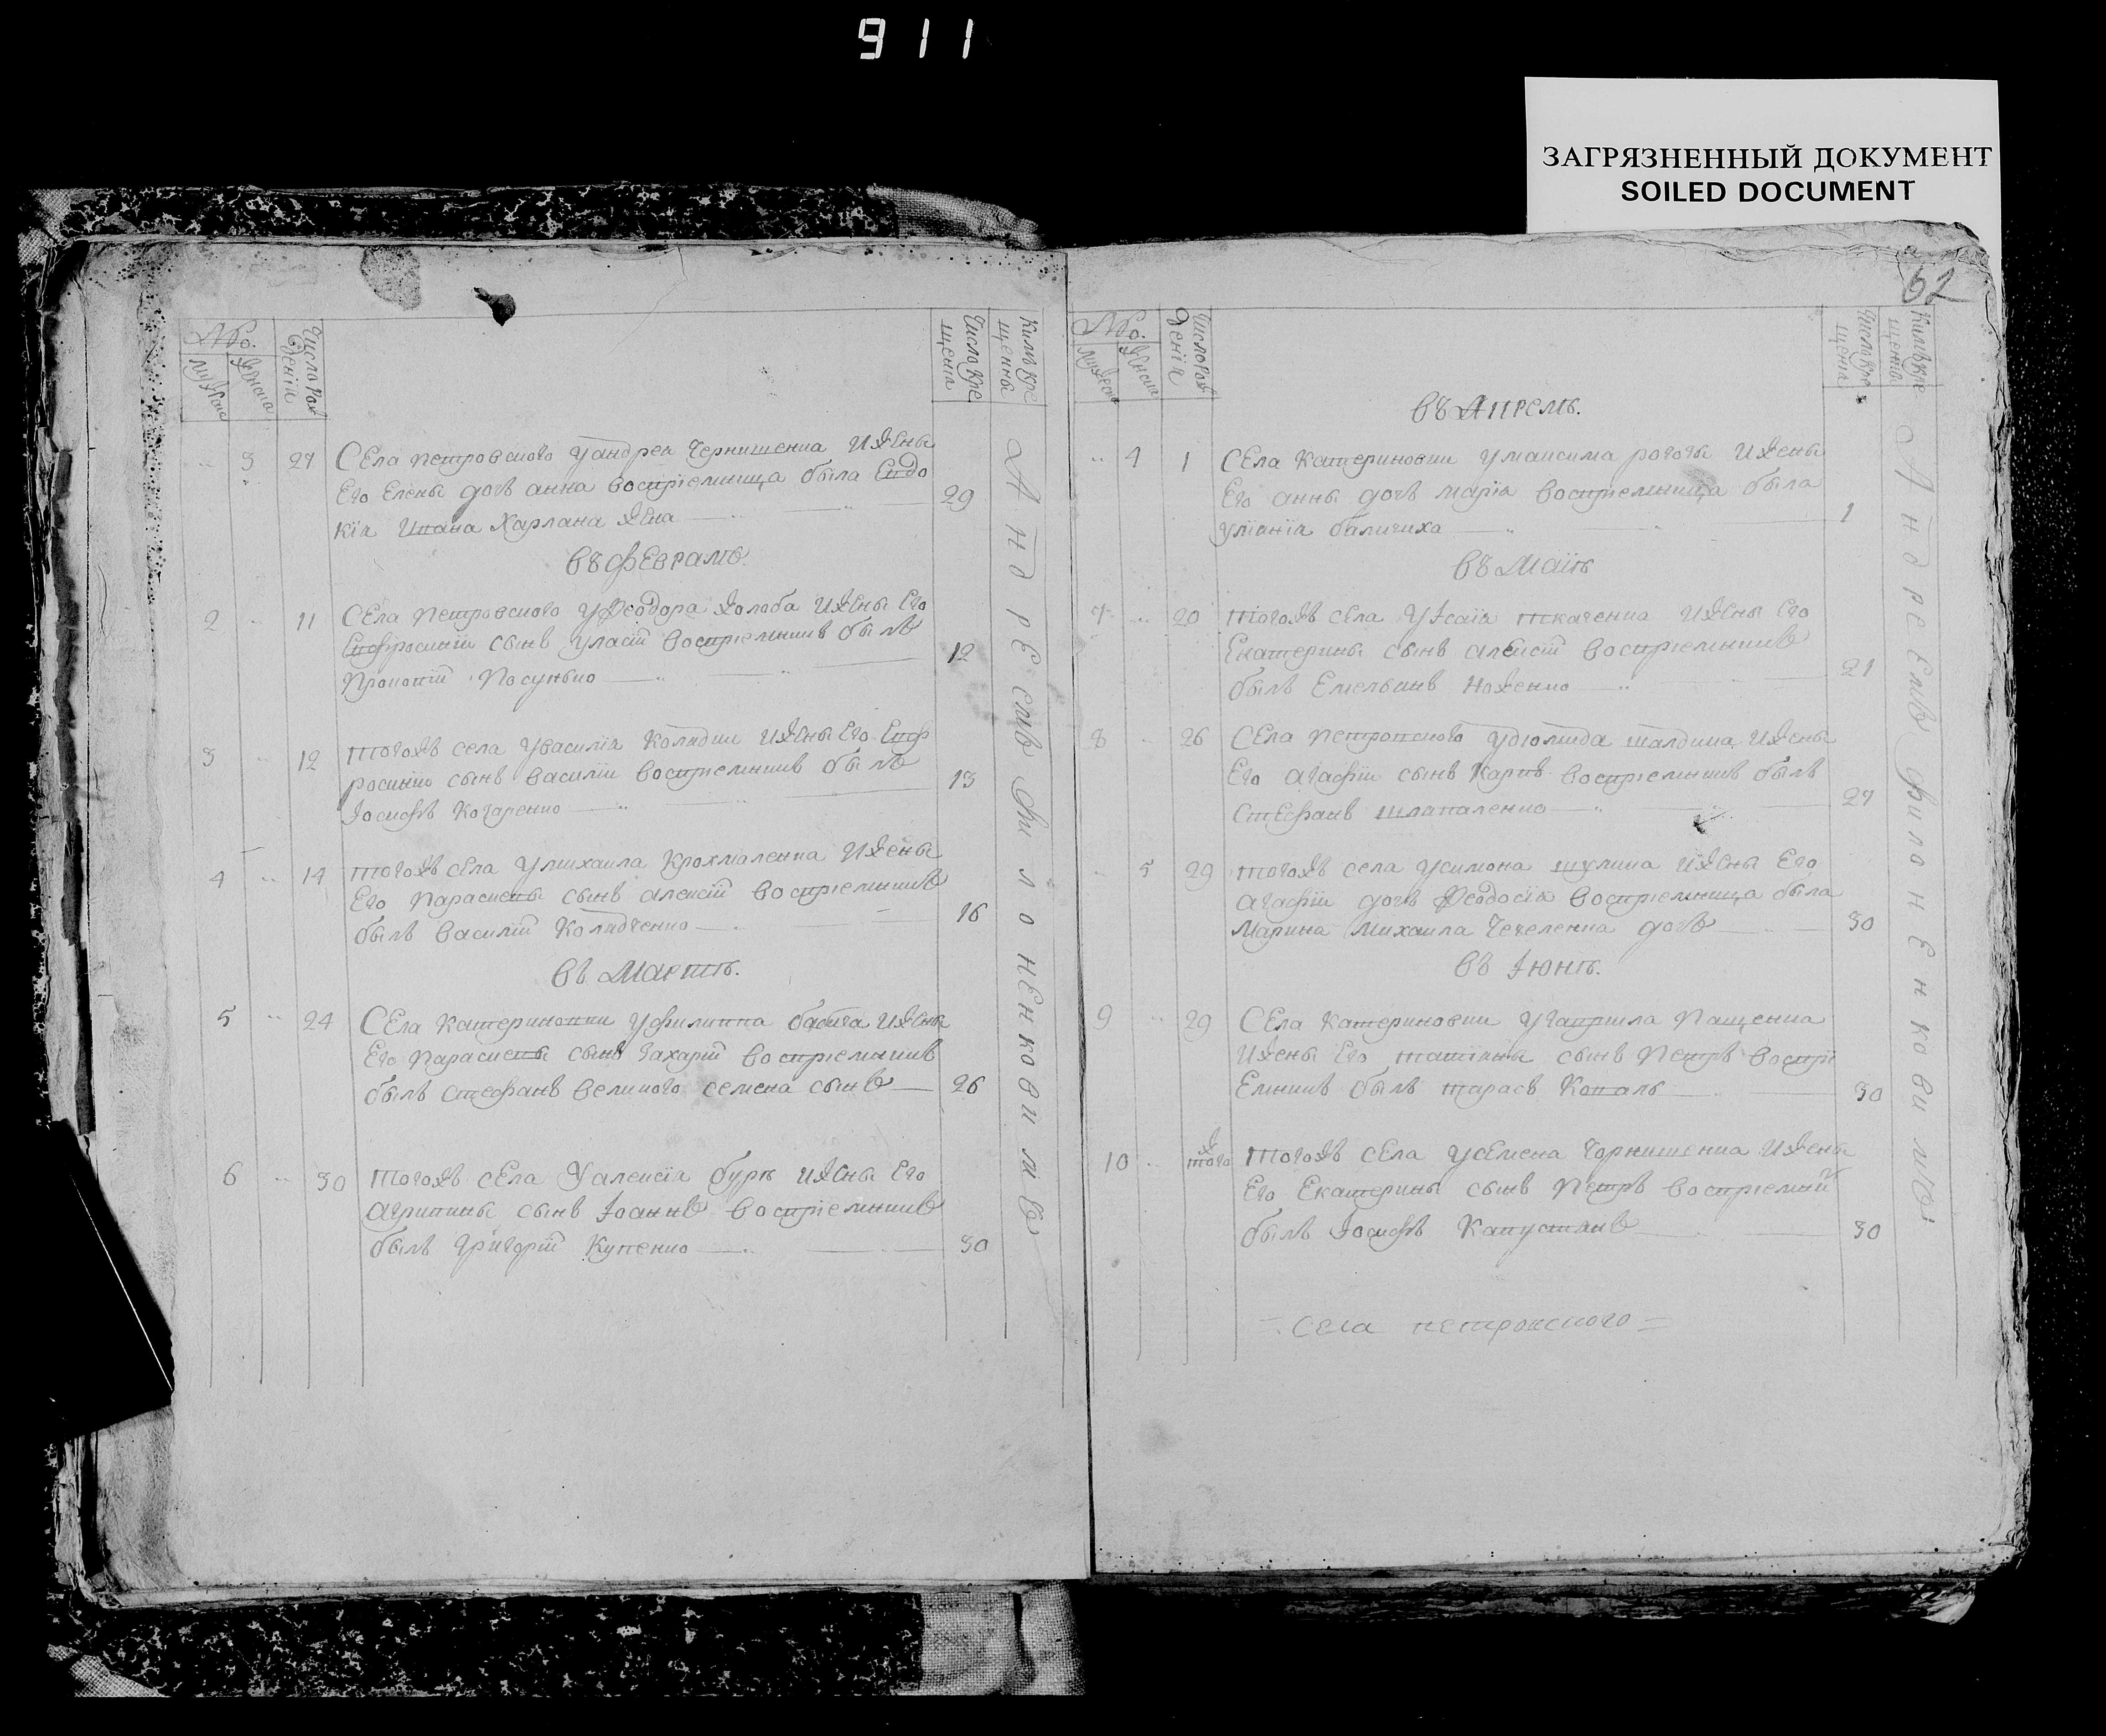 911
ЗАГРЯЗНЕННЫЙ ДОКУМЕНТ
SOILED DOCUMENT
62
№о.
мужеска
женска
Число рож
денїи
Число кре
щенїи
Кимъ кре
щенны
3 27 Села петровского у андрея Чернишенка и жены
Его Елены дочь анна воспрїемница была Евдо
кїя Ивана Харлана жена 29
въ февралѣ.
2 11 Села петровского у Феодора жолоба и жены Его
Евфросинїи сынъ Уласїй воспрїемникъ былъ
Прокопїй Посунько 12
3 12 тогожъ села у василїя Колядки и жены Его Евф
росинїи сынъ василїи воспрїемникъ былъ
Іосифъ Кочаренко 13
4 14 тогожъ села у михаила Крохмаленка и жены
Его Параскевы сынъ алексїй воспрїемникъ
былъ василїй Колядченко 16
въ Мартѣ.
5 24 Села Катериновки у филиппа бабича и жены
Его Параскевы сынъ Захарїй воспрїемникъ
былъ стефанъ великого семена сынъ 26
6 30 тогожъ села У алексїя бурѣ и жены Его
агрипины сынъ Іоаннъ воспрїемникъ
былъ Григорїй Купенко 30
Андреемъ Филоненковимъ
№о.
мужеска
женска
Число рож
денїи
Число кре
щенїи
Кимъ кре
щенны
въ Апрелѣ.
4 1 Села Катериновки у максима роготы и жены
Его анны дочь марїа воспрїемница была
Улїанїя баличиха 1
въ Маїѣ
7 20 тогожъ села у Ісаїя ткаченка и жены Его
Екатерины сынъ алеѯїй воспрїемникъ
былъ Емельянъ Ноженко 21
8 26 Села петровского у дїомида шалдика и жены
Его агафїи сынъ Карпъ воспрїемникъ былъ
стефанъ шлапаленко 27
5 29 тогожъ села у симона шулика и жены Его
агафїи дочь Феодосїя воспрїемница была
Марина Михаила Чечеленка дочь 30
въ Іюнѣ.
9 29 Села Катериновки у гаврила Пащенка
и жены Его татїяни сынъ Петръ воспрї
Емникъ былъ тарасъ Коваль 30
10 того ж тогожъ села у семена Чорнишенка и жены
Его Екатерины сынъ Петръ воспрїемнїй
былъ Іосифъ Капустянъ 30
Андреемъ Филоненковимъ.
села петровского